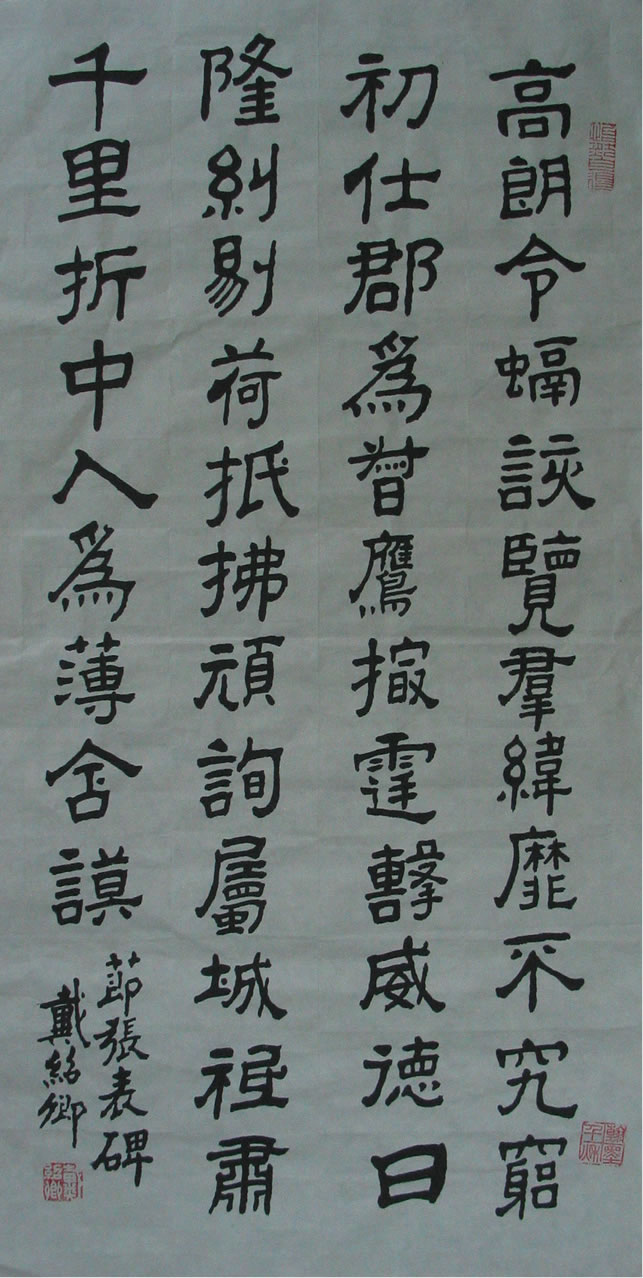 高朗令融該覽羣緯靡不究窮
初仕郡爲督鷹撮霆擊威德日
隆糾剔荷抵拂頑詢屬城祗肅
千里折中入爲薄舍謨
節張表碑
戴紹卿